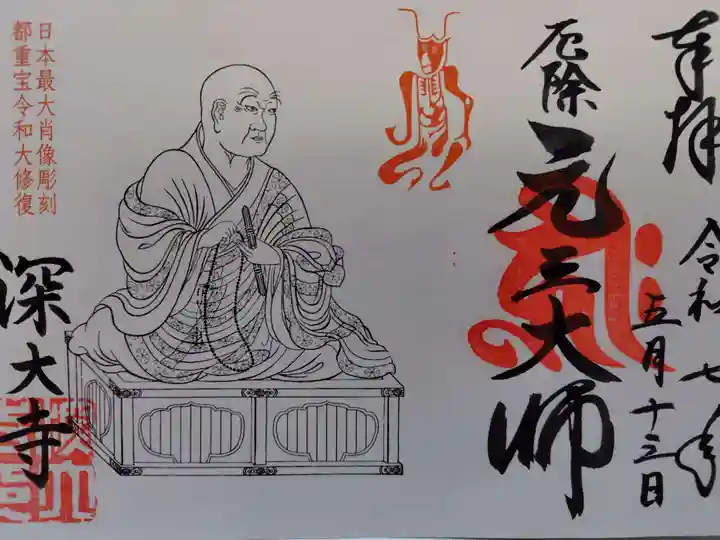 奉拝
令和七年
五月十三日
厄除
元三大師
日本最大肖像彫刻
都重宝令和大修復
深大寺